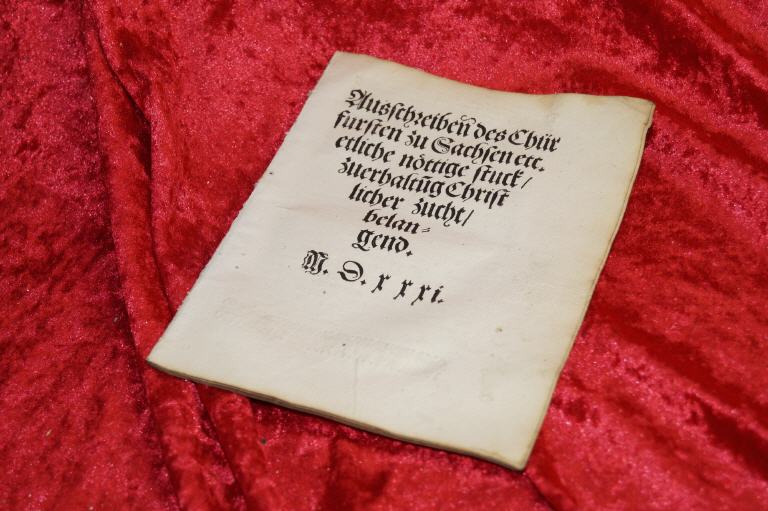 Ausschreiben̄ des Chür
fursten zu Sachsen etc.
etliche nöttige stuck/
zuerhaltūg Christ
licher zucht/
belan⸗
gend.
M. D. x x x i.